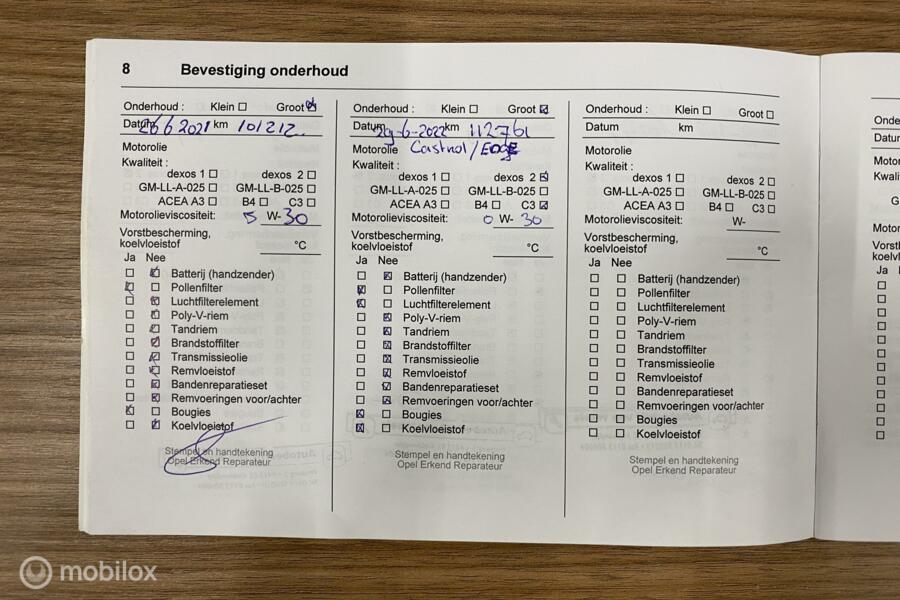 8 Bevestiging onderhoud
Onderhoud : Klein ☐ Groot ☒
Datum 26 6 2021 km 101212
Motorolie
Kwaliteit :
dexos 1 ☐ dexos 2 ☐
GM-LL-A-025 ☐ GM-LL-B-025 ☐
ACEA A3 ☐ B4 ☐ C3 ☐
Motorolieviscositeit: 5 W- 30
Vorstbescherming,
koelvloeistof °C
Ja Nee
☐ ☒ Batterij (handzender)
☒ ☐ Pollenfilter
☐ ☒ Luchtfilterelement
☐ ☒ Poly-V-riem
☐ ☒ Tandriem
☐ ☒ Brandstoffilter
☐ ☒ Transmissieolie
☐ ☒ Remvloeistof
☐ ☒ Bandenreparatieset
☐ ☒ Remvoeringen voor/achter
☒ ☐ Bougies
☐ ☒ Koelvloeistof
Stempel en handtekening
Opel Erkend Reparateur
Onderhoud : Klein ☐ Groot ☒
Datum 29-6-2022 km 112761
Motorolie Castrol / EDGE
Kwaliteit :
dexos 1 ☐ dexos 2 ☒
GM-LL-A-025 ☐ GM-LL-B-025 ☐
ACEA A3 ☐ B4 ☐ C3 ☒
Motorolieviscositeit: 0 W- 30
Vorstbescherming,
koelvloeistof °C
Ja Nee
☐ ☒ Batterij (handzender)
☒ ☐ Pollenfilter
☒ ☐ Luchtfilterelement
☐ ☒ Poly-V-riem
☐ ☒ Tandriem
☐ ☒ Brandstoffilter
☐ ☒ Transmissieolie
☐ ☒ Remvloeistof
☐ ☒ Bandenreparatieset
☐ ☒ Remvoeringen voor/achter
☒ ☐ Bougies
☒ ☐ Koelvloeistof
Stempel en handtekening
Opel Erkend Reparateur
Onderhoud : Klein ☐ Groot ☐
Datum km
Motorolie
Kwaliteit :
dexos 1 ☐ dexos 2 ☐
GM-LL-A-025 ☐ GM-LL-B-025 ☐
ACEA A3 ☐ B4 ☐ C3 ☐
Motorolieviscositeit: W-
Vorstbescherming,
koelvloeistof °C
Ja Nee
☐ ☐ Batterij (handzender)
☐ ☐ Pollenfilter
☐ ☐ Luchtfilterelement
☐ ☐ Poly-V-riem
☐ ☐ Tandriem
☐ ☐ Brandstoffilter
☐ ☐ Transmissieolie
☐ ☐ Remvloeistof
☐ ☐ Bandenreparatieset
☐ ☐ Remvoeringen voor/achter
☐ ☐ Bougies
☐ ☐ Koelvloeistof
Stempel en handtekening
Opel Erkend Reparateur
Ja
mobilox